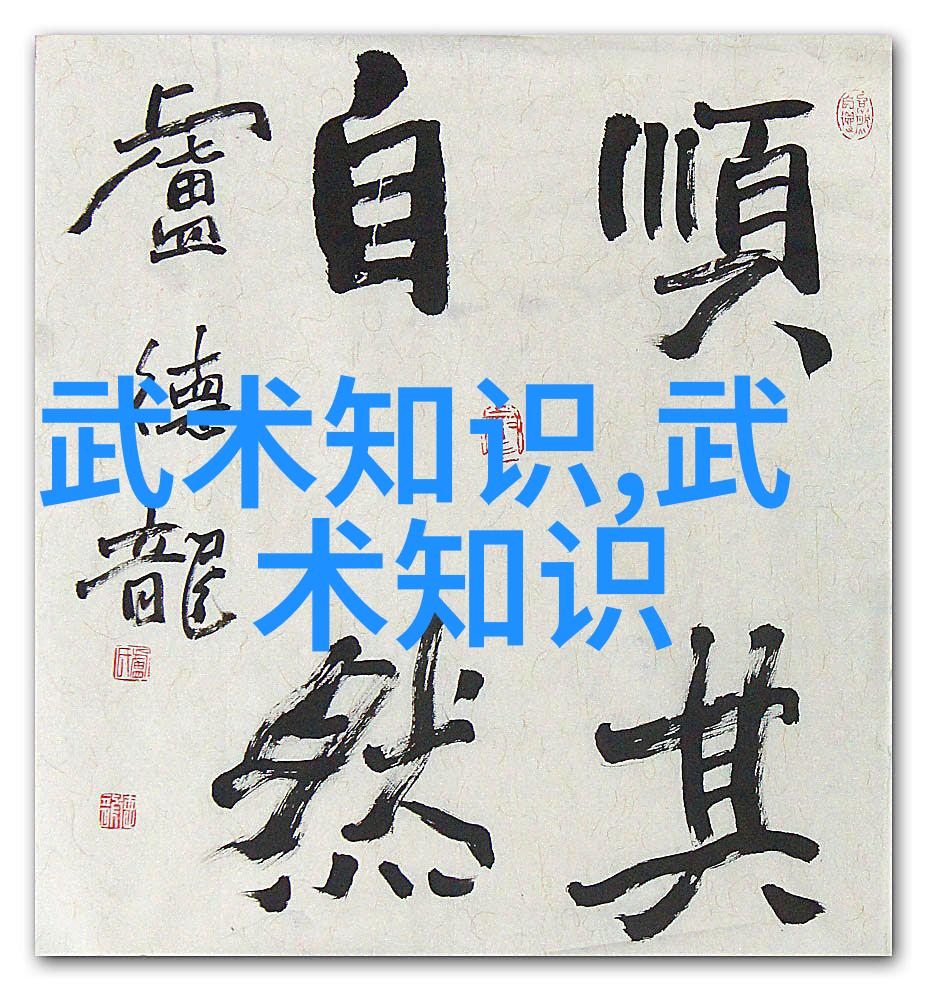 順其
自然
盧德龍
武术知识,武
术知识